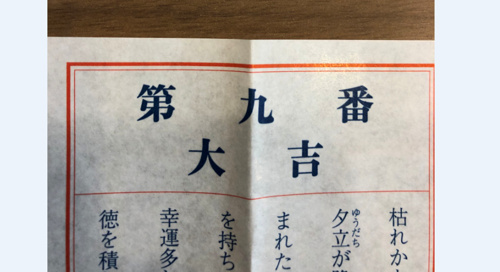 第九番
大吉
枯れか
夕立が
ゆうだち
まれた
を持ち
幸運多
徳を積